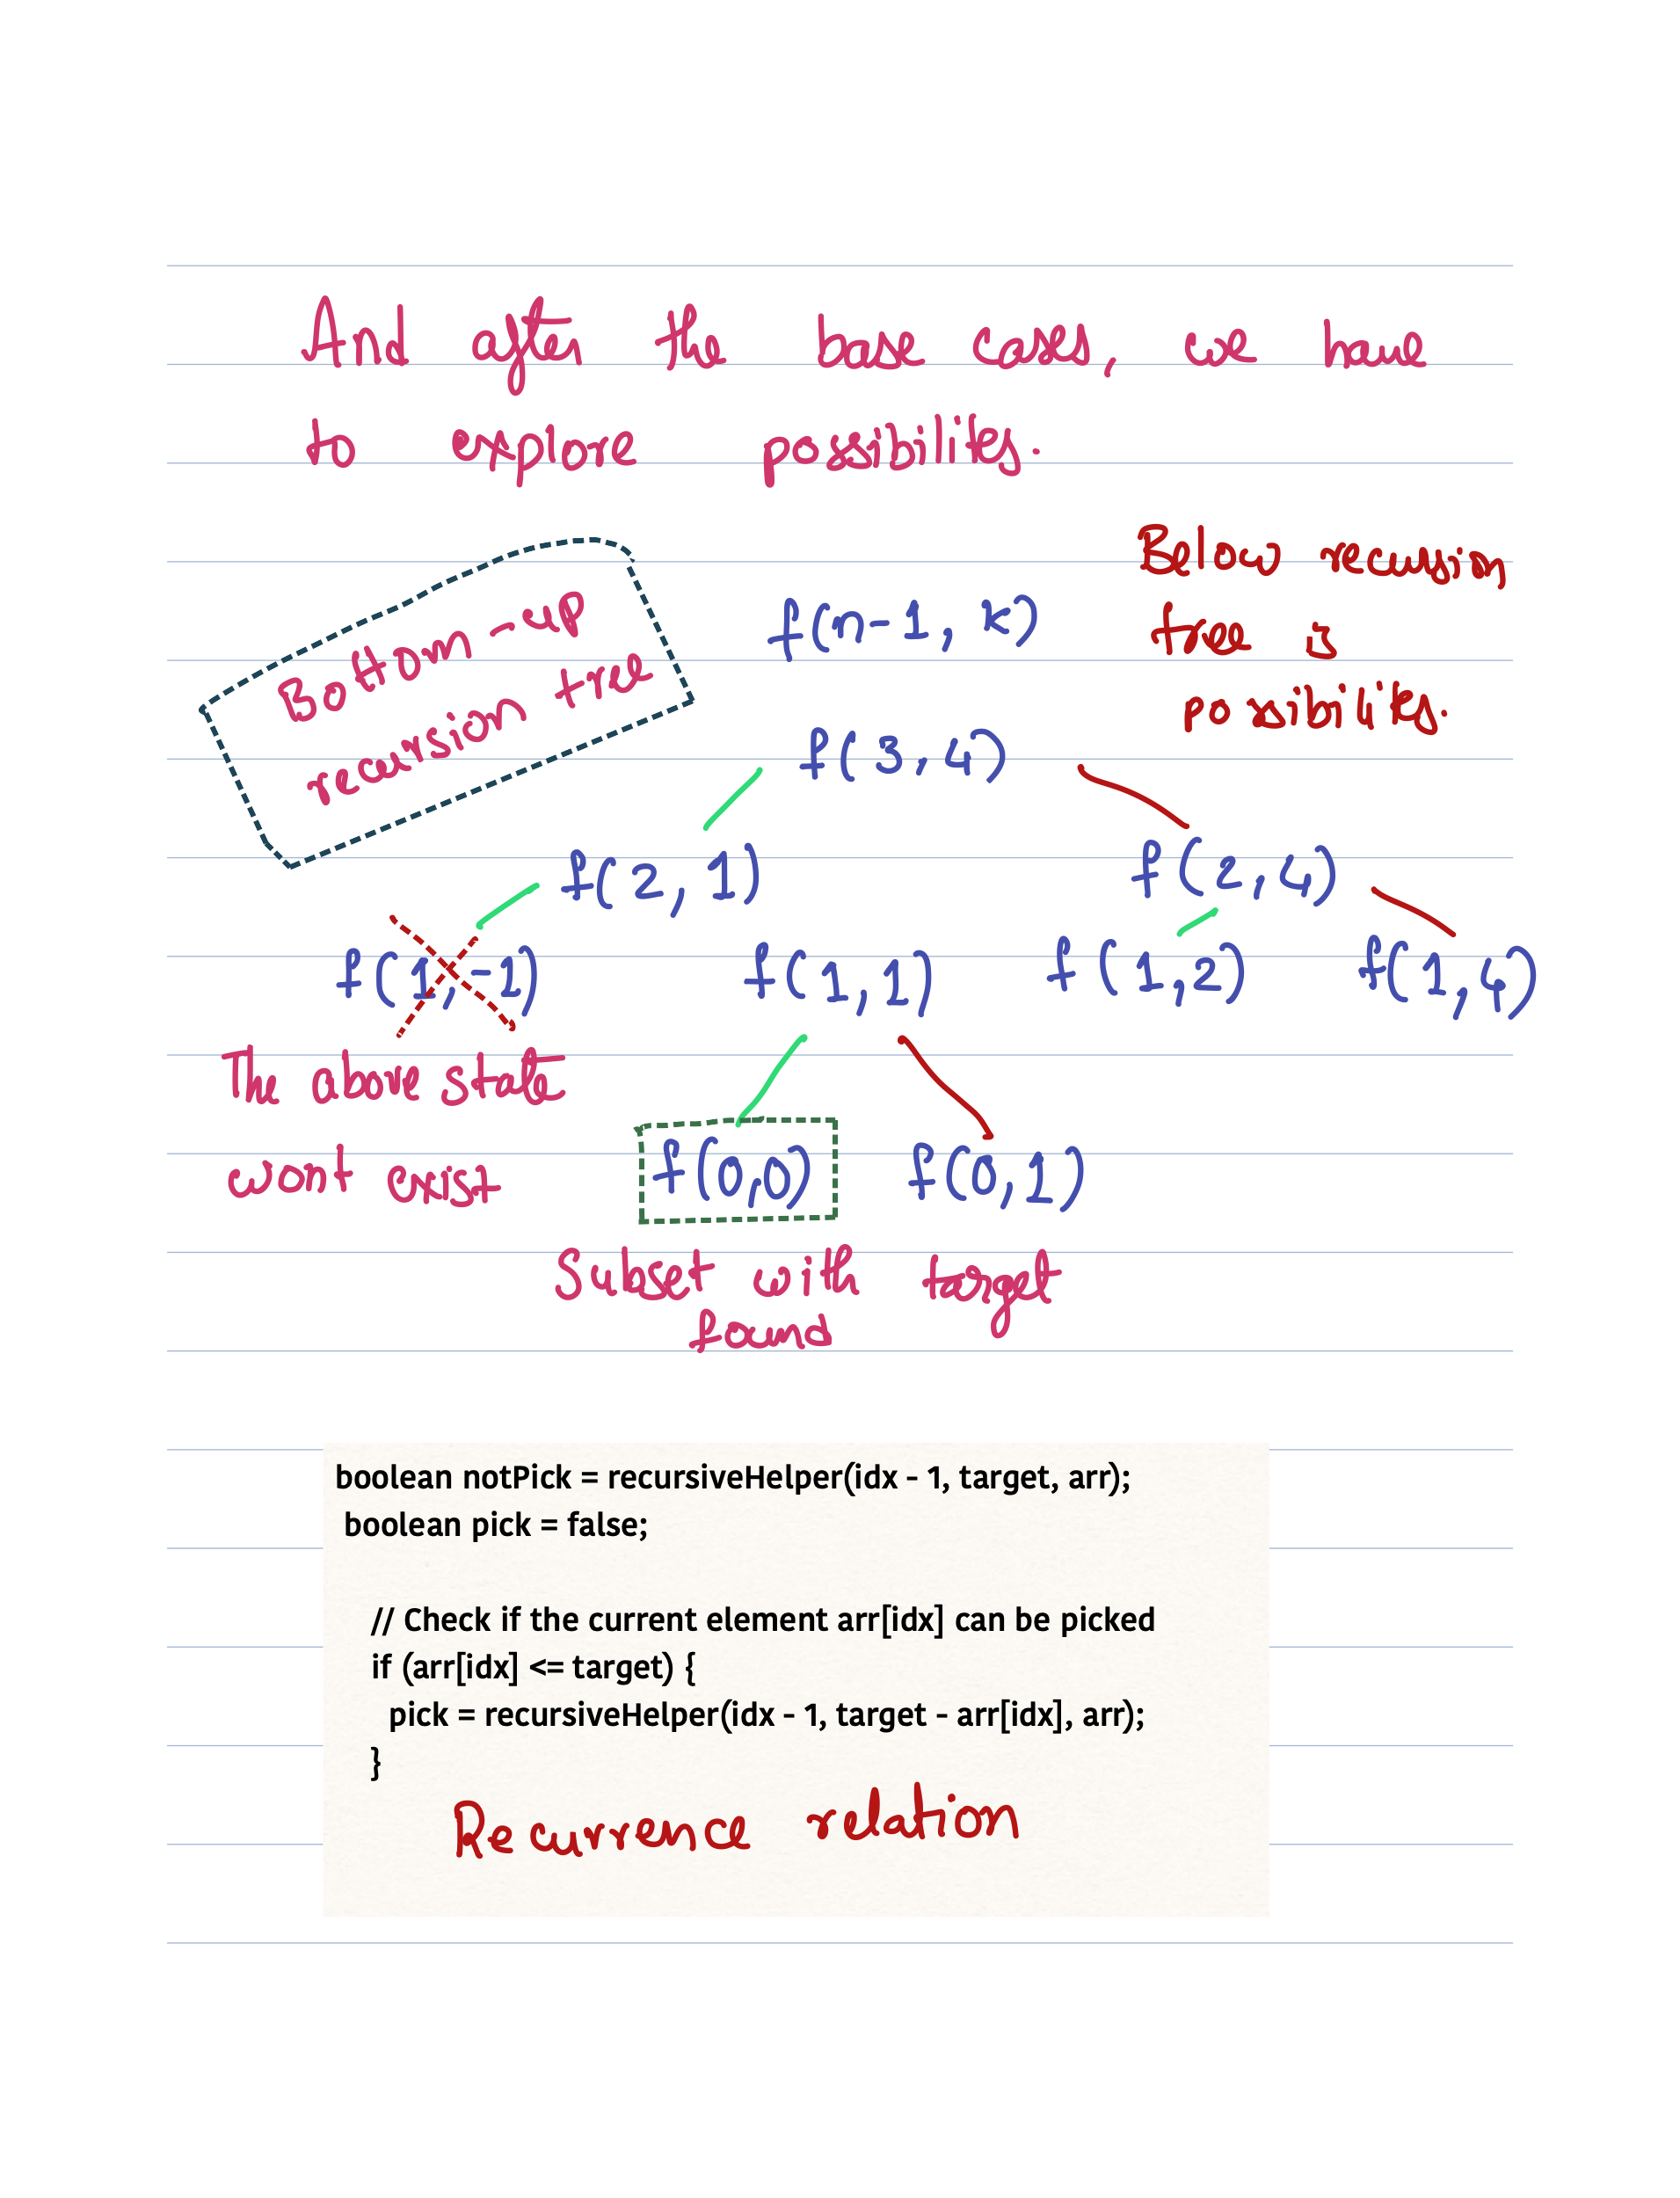 And after the base cases, we have
to explore possibilites.
Bottom-up
recursion tree
Below recursion
tree is
possibilites.
f(n-1, k)
f(3,4)
f(2,1) f(2,4)
f(1,-1) f(1,1) f(1,2) f(1,4)
The above state
wont exist
f(0,0) f(0,1)
Subset with target
found
boolean notPick = recursiveHelper(idx - 1, target, arr);
boolean pick = false;
// Check if the current element arr[idx] can be picked
if (arr[idx] <= target) {
pick = recursiveHelper(idx - 1, target - arr[idx], arr);
}
Recurrence relation